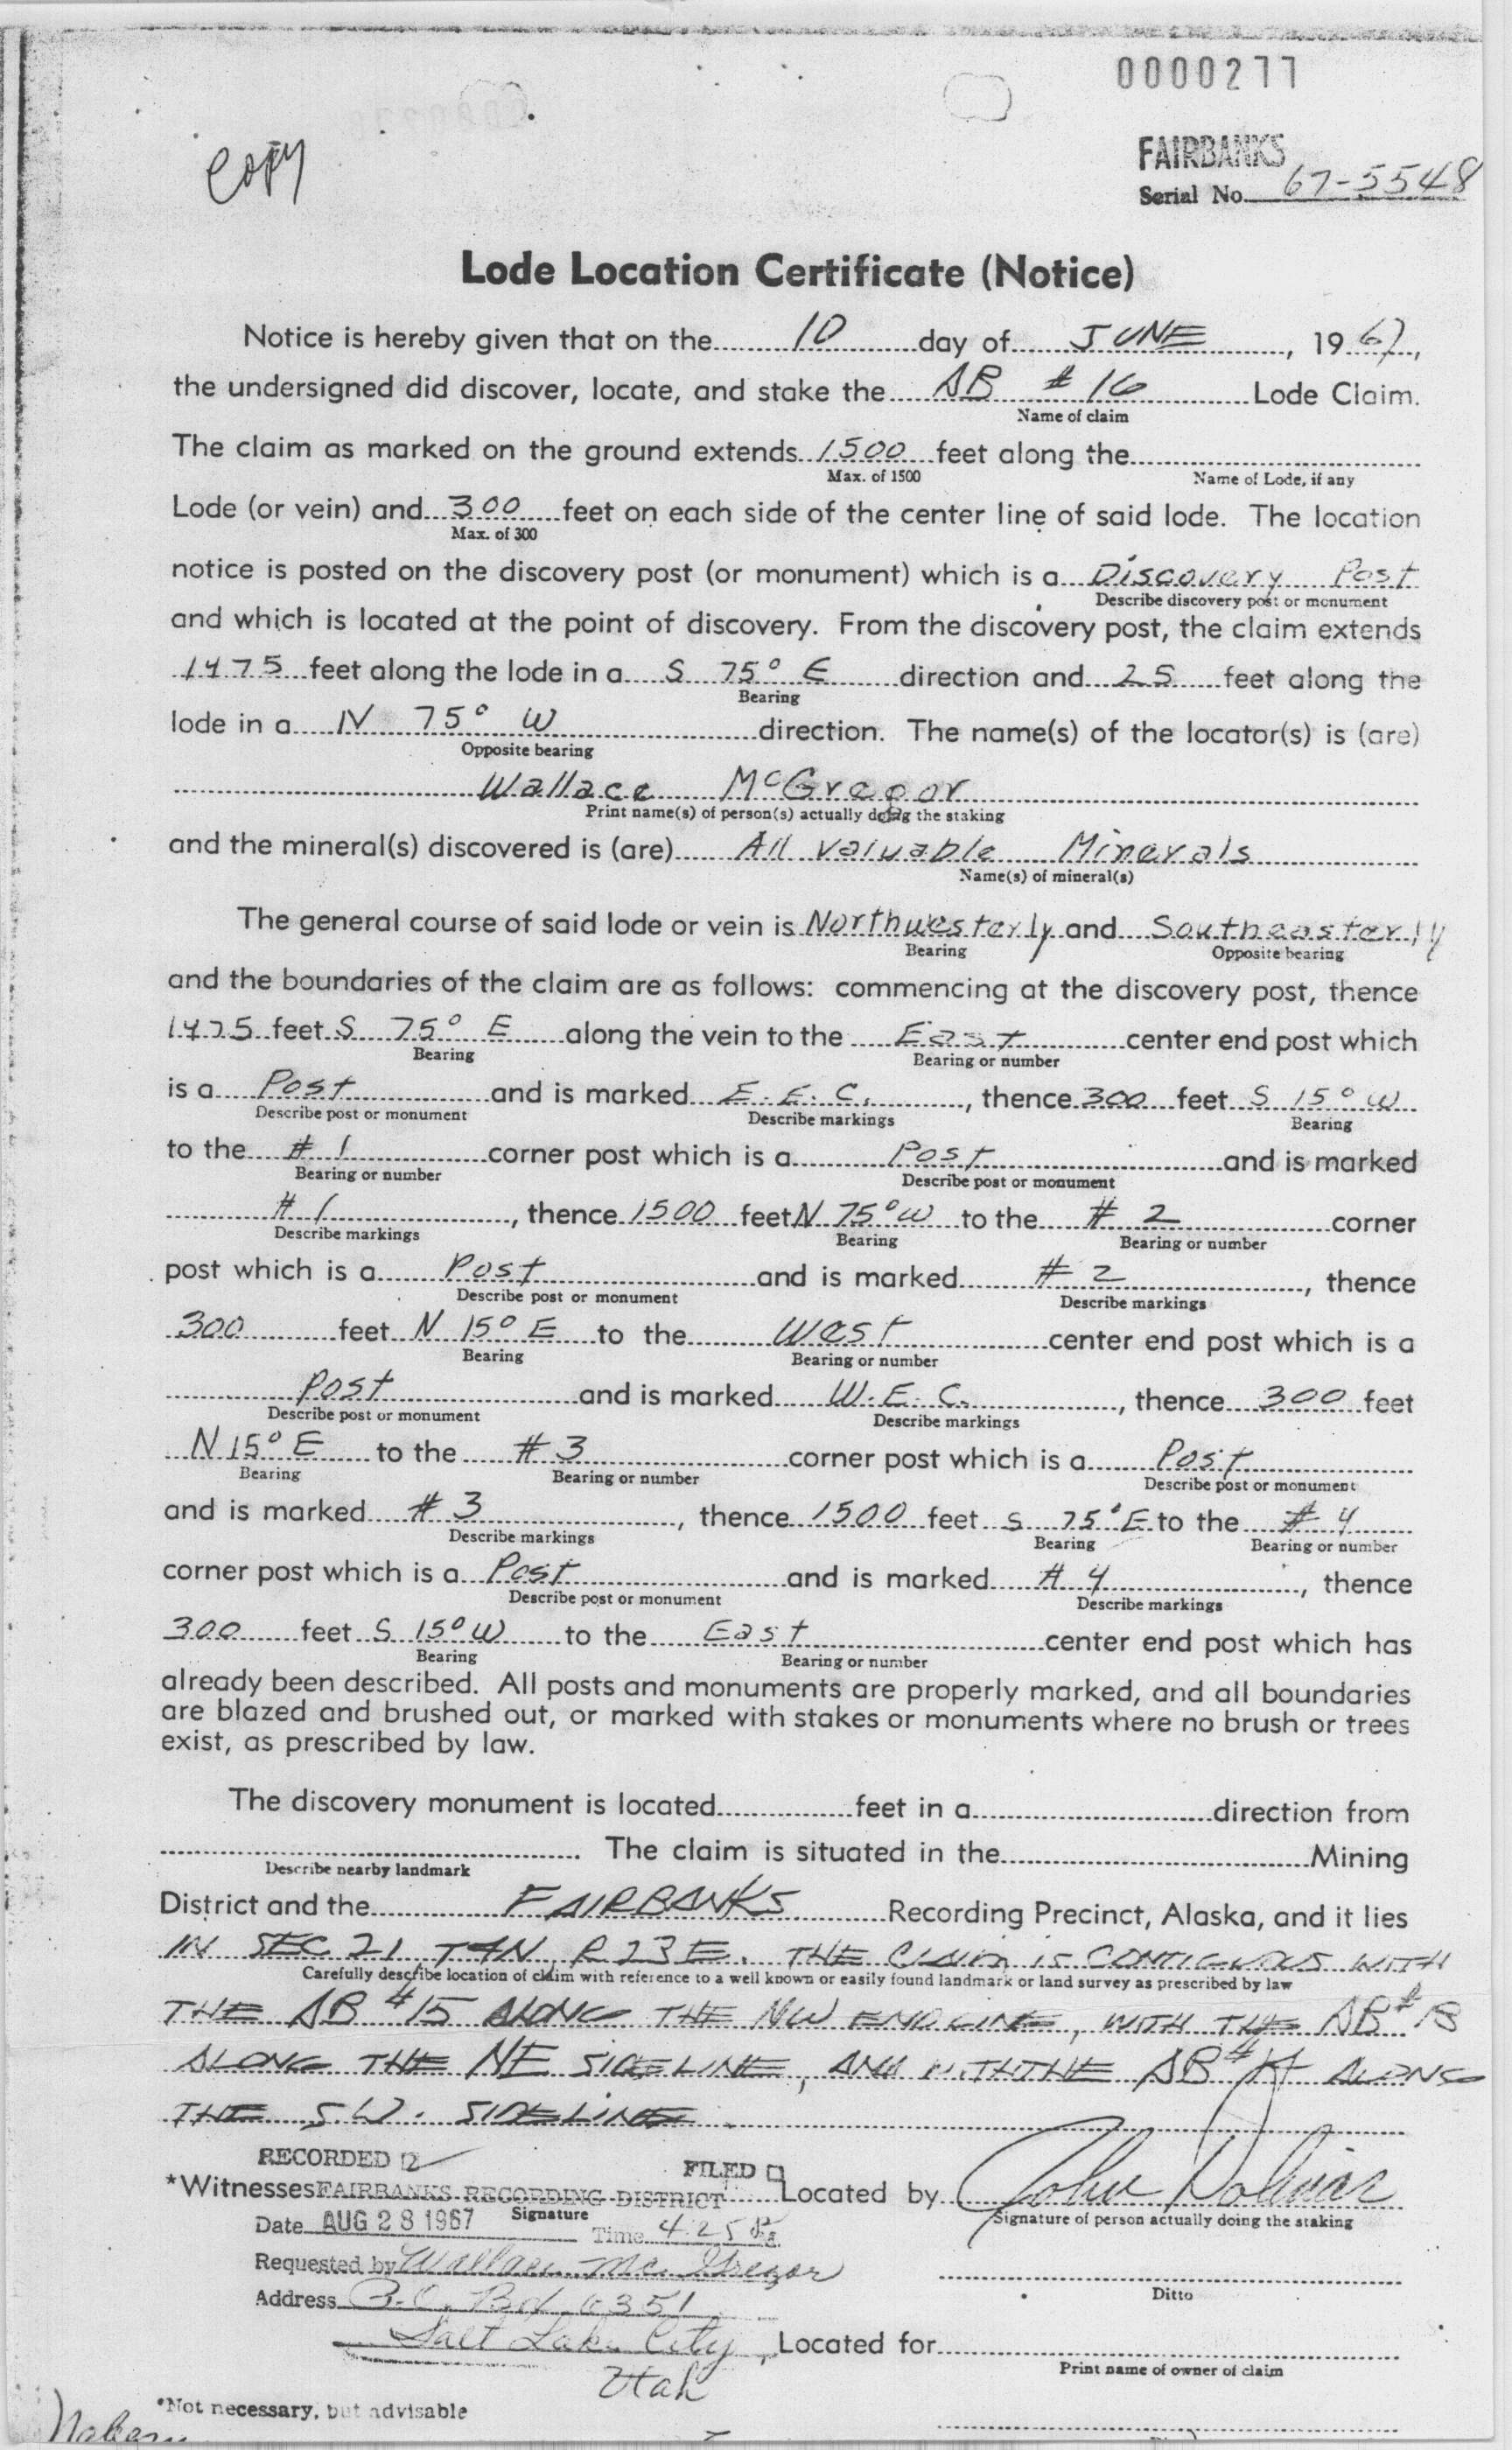 0000277
COPY
FAIRBANKS
Serial No. 67-5548
Lode Location Certificate (Notice)
Notice is hereby given that on the 10 day of JUNE, 1967,
the undersigned did discover, locate, and stake the AB #16 Lode Claim.
Name of claim
The claim as marked on the ground extends 1500 feet along the
Max. of 1500 Name of Lode, if any
Lode (or vein) and 300 feet on each side of the center line of said lode. The location
Max. of 300
notice is posted on the discovery post (or monument) which is a Discovery Post
Describe discovery post or monument
and which is located at the point of discovery. From the discovery post, the claim extends
1475 feet along the lode in a S 75° E direction and 25 feet along the
Bearing
lode in a N 75° W direction. The name(s) of the locator(s) is (are)
Opposite bearing
Wallace McGregor
Print name(s) of person(s) actually doing the staking
and the mineral(s) discovered is (are) All Valuable Minerals
Name(s) of mineral(s)
The general course of said lode or vein is Northwesterly and Southeasterly
Bearing Opposite bearing
and the boundaries of the claim are as follows: commencing at the discovery post, thence
1475 feet S 75° E along the vein to the East center end post which
Bearing Bearing or number
is a Post and is marked E.E.C., thence 300 feet S 15° W
Describe post or monument Describe markings Bearing
to the #1 corner post which is a Post and is marked
Bearing or number Describe post or monument
#1, thence 1500 feet N 75° W to the #2 corner
Describe markings Bearing Bearing or number
post which is a Post and is marked #2, thence
Describe post or monument Describe markings
300 feet N 15° E to the West center end post which is a
Bearing Bearing or number
Post and is marked W.E.C., thence 300 feet
Describe post or monument Describe markings
N 15° E to the #3 corner post which is a Post
Bearing Bearing or number Describe post or monument
and is marked #3, thence 1500 feet S 75° E to the #4
Describe markings Bearing Bearing or number
corner post which is a Post and is marked #4, thence
Describe post or monument Describe markings
300 feet S 15° W to the East center end post which has
Bearing Bearing or number
already been described. All posts and monuments are properly marked, and all boundaries
are blazed and brushed out, or marked with stakes or monuments where no brush or trees
exist, as prescribed by law.
The discovery monument is located feet in a direction from
. The claim is situated in the Mining
Describe nearby landmark
District and the FAIRBANKS Recording Precinct, Alaska, and it lies
IN SEC 21 T4N R23E. THE CLAIM IS CONTIGUOUS WITH
Carefully describe location of claim with reference to a well known or easily found landmark or land survey as prescribed by law
THE AB #15 ALONG THE NW ENDLINE, WITH THE AB #18
ALONG THE NE SIDELINE, AND WITH THE AB #14 ALONG
THE S.W. SIDELINE.
RECORDED FILED
*Witnesses FAIRBANKS RECORDING DISTRICT Located by
Signature Signature of person actually doing the staking
Date AUG 28 1967 Time 4:25 P
Requested by Wallace McGregor
Ditto
Address P.O. Box 6351
Salt Lake City, Located for
Utah Print name of owner of claim
*Not necessary, but advisable